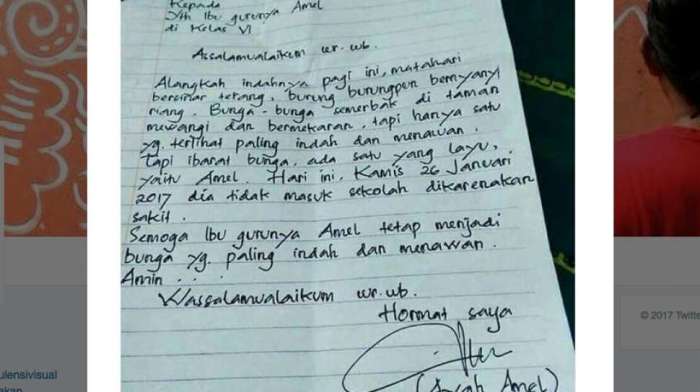 Kepada
Yth Ibu gurunya Amel
di Kelas VI
Assalamualaikum wr. wb.
Alangkah indahnya pagi ini, matahari
bersinar terang, burung burungpun bernyanyi
riang. Bunga-bunga semerbak di taman
mewangi dan bermekaran, tapi hanya satu
yg. terlihat paling indah dan menawan.
Tapi ibarat bunga, ada satu yang layu,
yaitu Amel. Hari ini, Kamis 26 Januari
2017 dia tidak masuk sekolah dikarenakan
sakit.
Semoga Ibu gurunya Amel tetap menjadi
bunga yg. paling indah dan menawan.
Amin . . .
Wassalamualaikum wr. wb.
Hormat saya
(Ayah Amel)
ulensivisual
akan
© 2017 Twitte